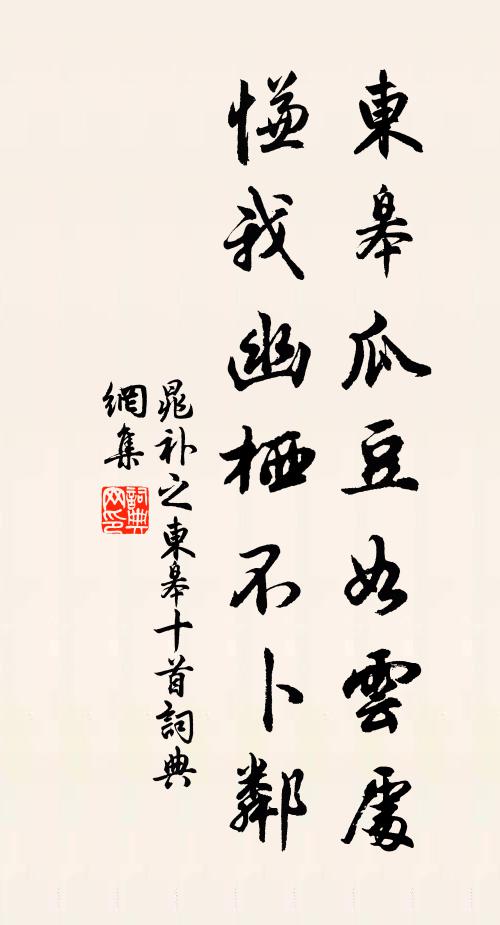 東皋瓜豆如雲處
慊我幽栖不卜鄰
晁补之東皋十首詞典
網集
詞典
网印